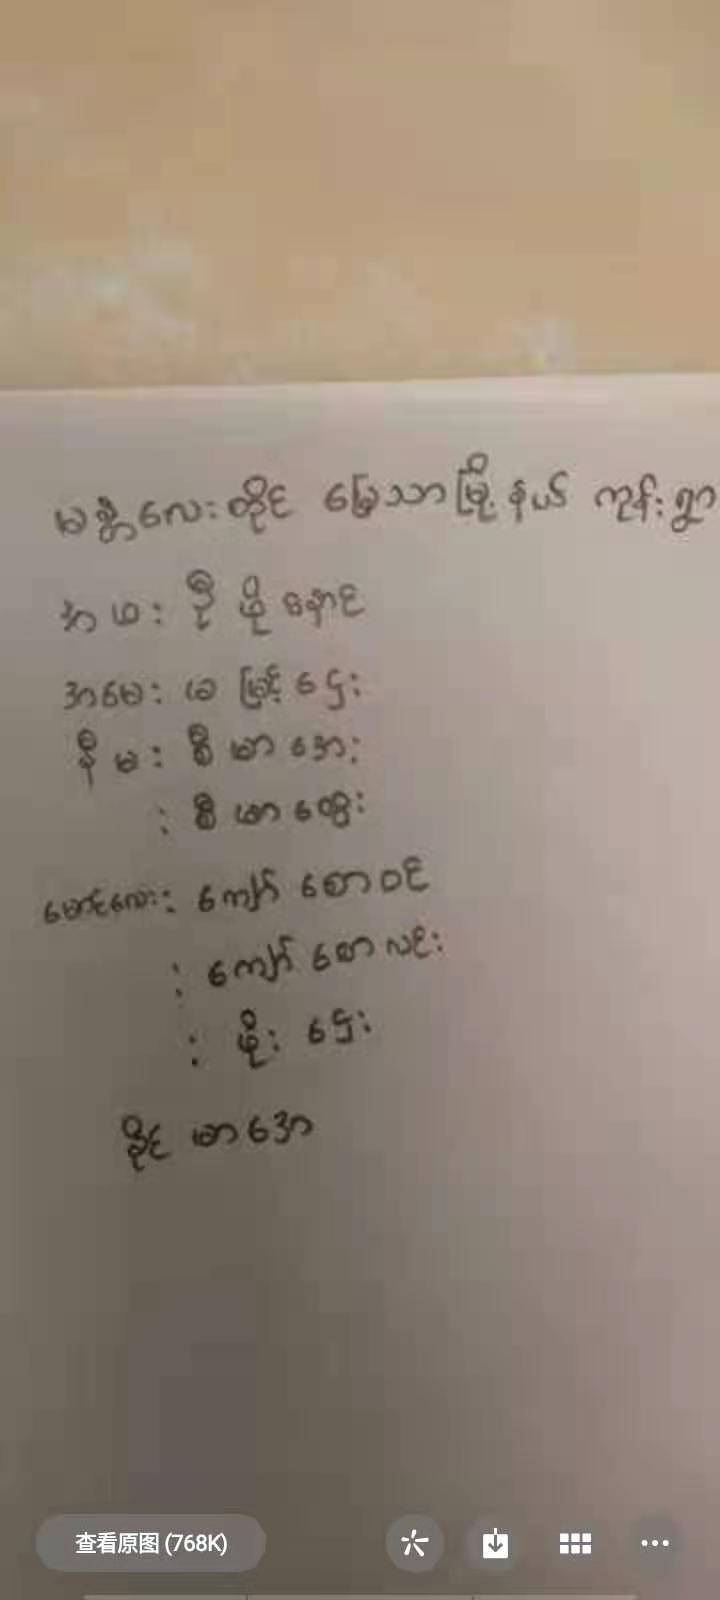 မန္တလေးတိုင် မြွေသာမြို့နယ် ကုန်းရွာ
အဖ : ဦ ဖို နောင်
အမေ : ဒေ မြင့် ဌေး
နီ မ : စီ မာ အေး
: စီ မာ ထွေး
မောင်လေး : ကျော် စော ဝင်
: ကျော် စော လင်း
: ဖိုး ဌေး
ခိုင် မာ အော
查看原图 (768K)